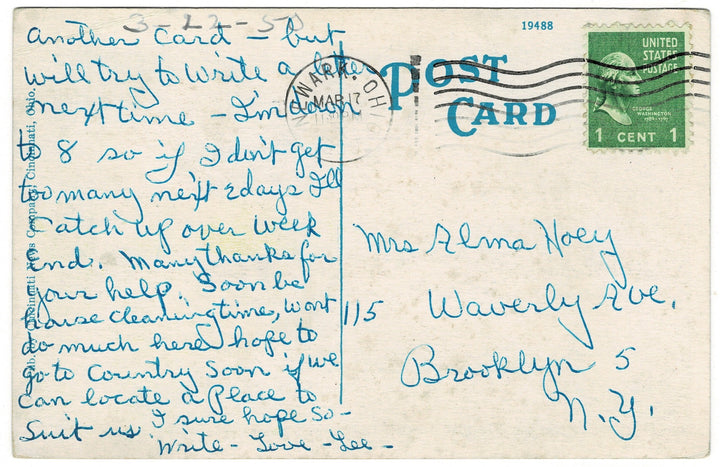 3-22-50
another Card - but
will try to write a letter
next time - I'm down
to 8 so if I don't get
too many next 2 days I'll
Catch up over week
end. Many thanks for
your help. Soon be
house cleaning time, wont
do much here hope to
go to Country soon if we
can locate a place to
suit us I sure hope so-
Write - Love - Lee -
Pub. by Cincinnati News Company, Cincinnati, Ohio.
19488
POST
CARD
NEWARK, OHIO
MAR 17
UNITED
STATES
POSTAGE
GEORGE
WASHINGTON
1 CENT 1
Mrs Alma Hoey
115 Waverly Ave.
Brooklyn 5
N.Y.